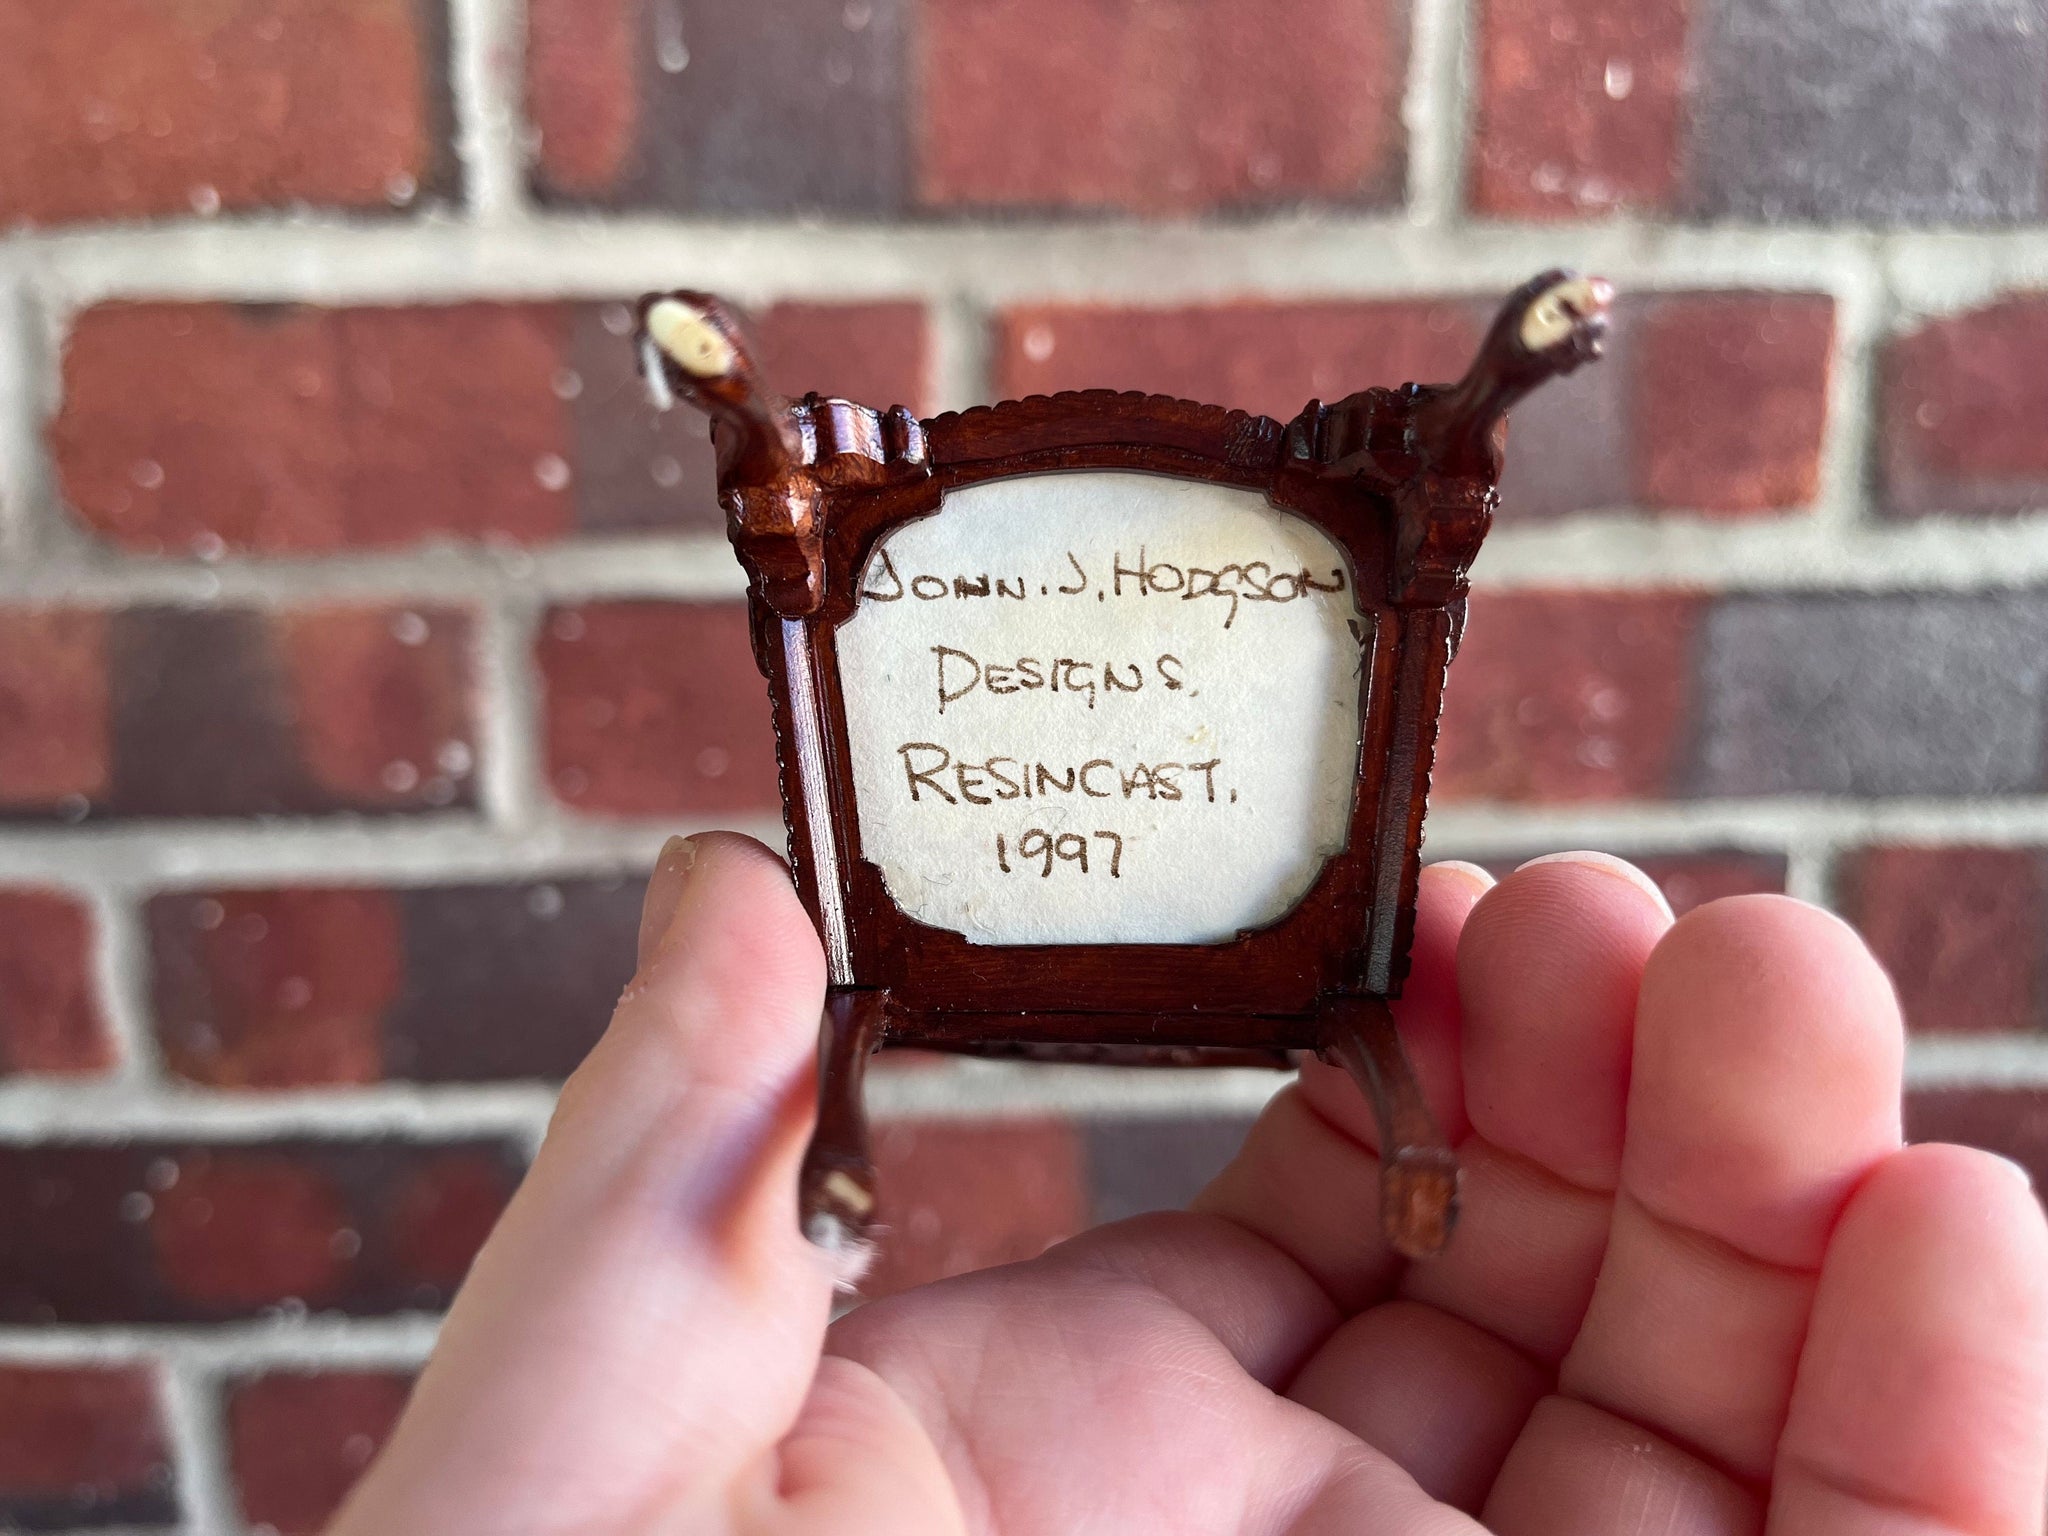 John. J. Hodgson
Designs.
Resincast.
1997